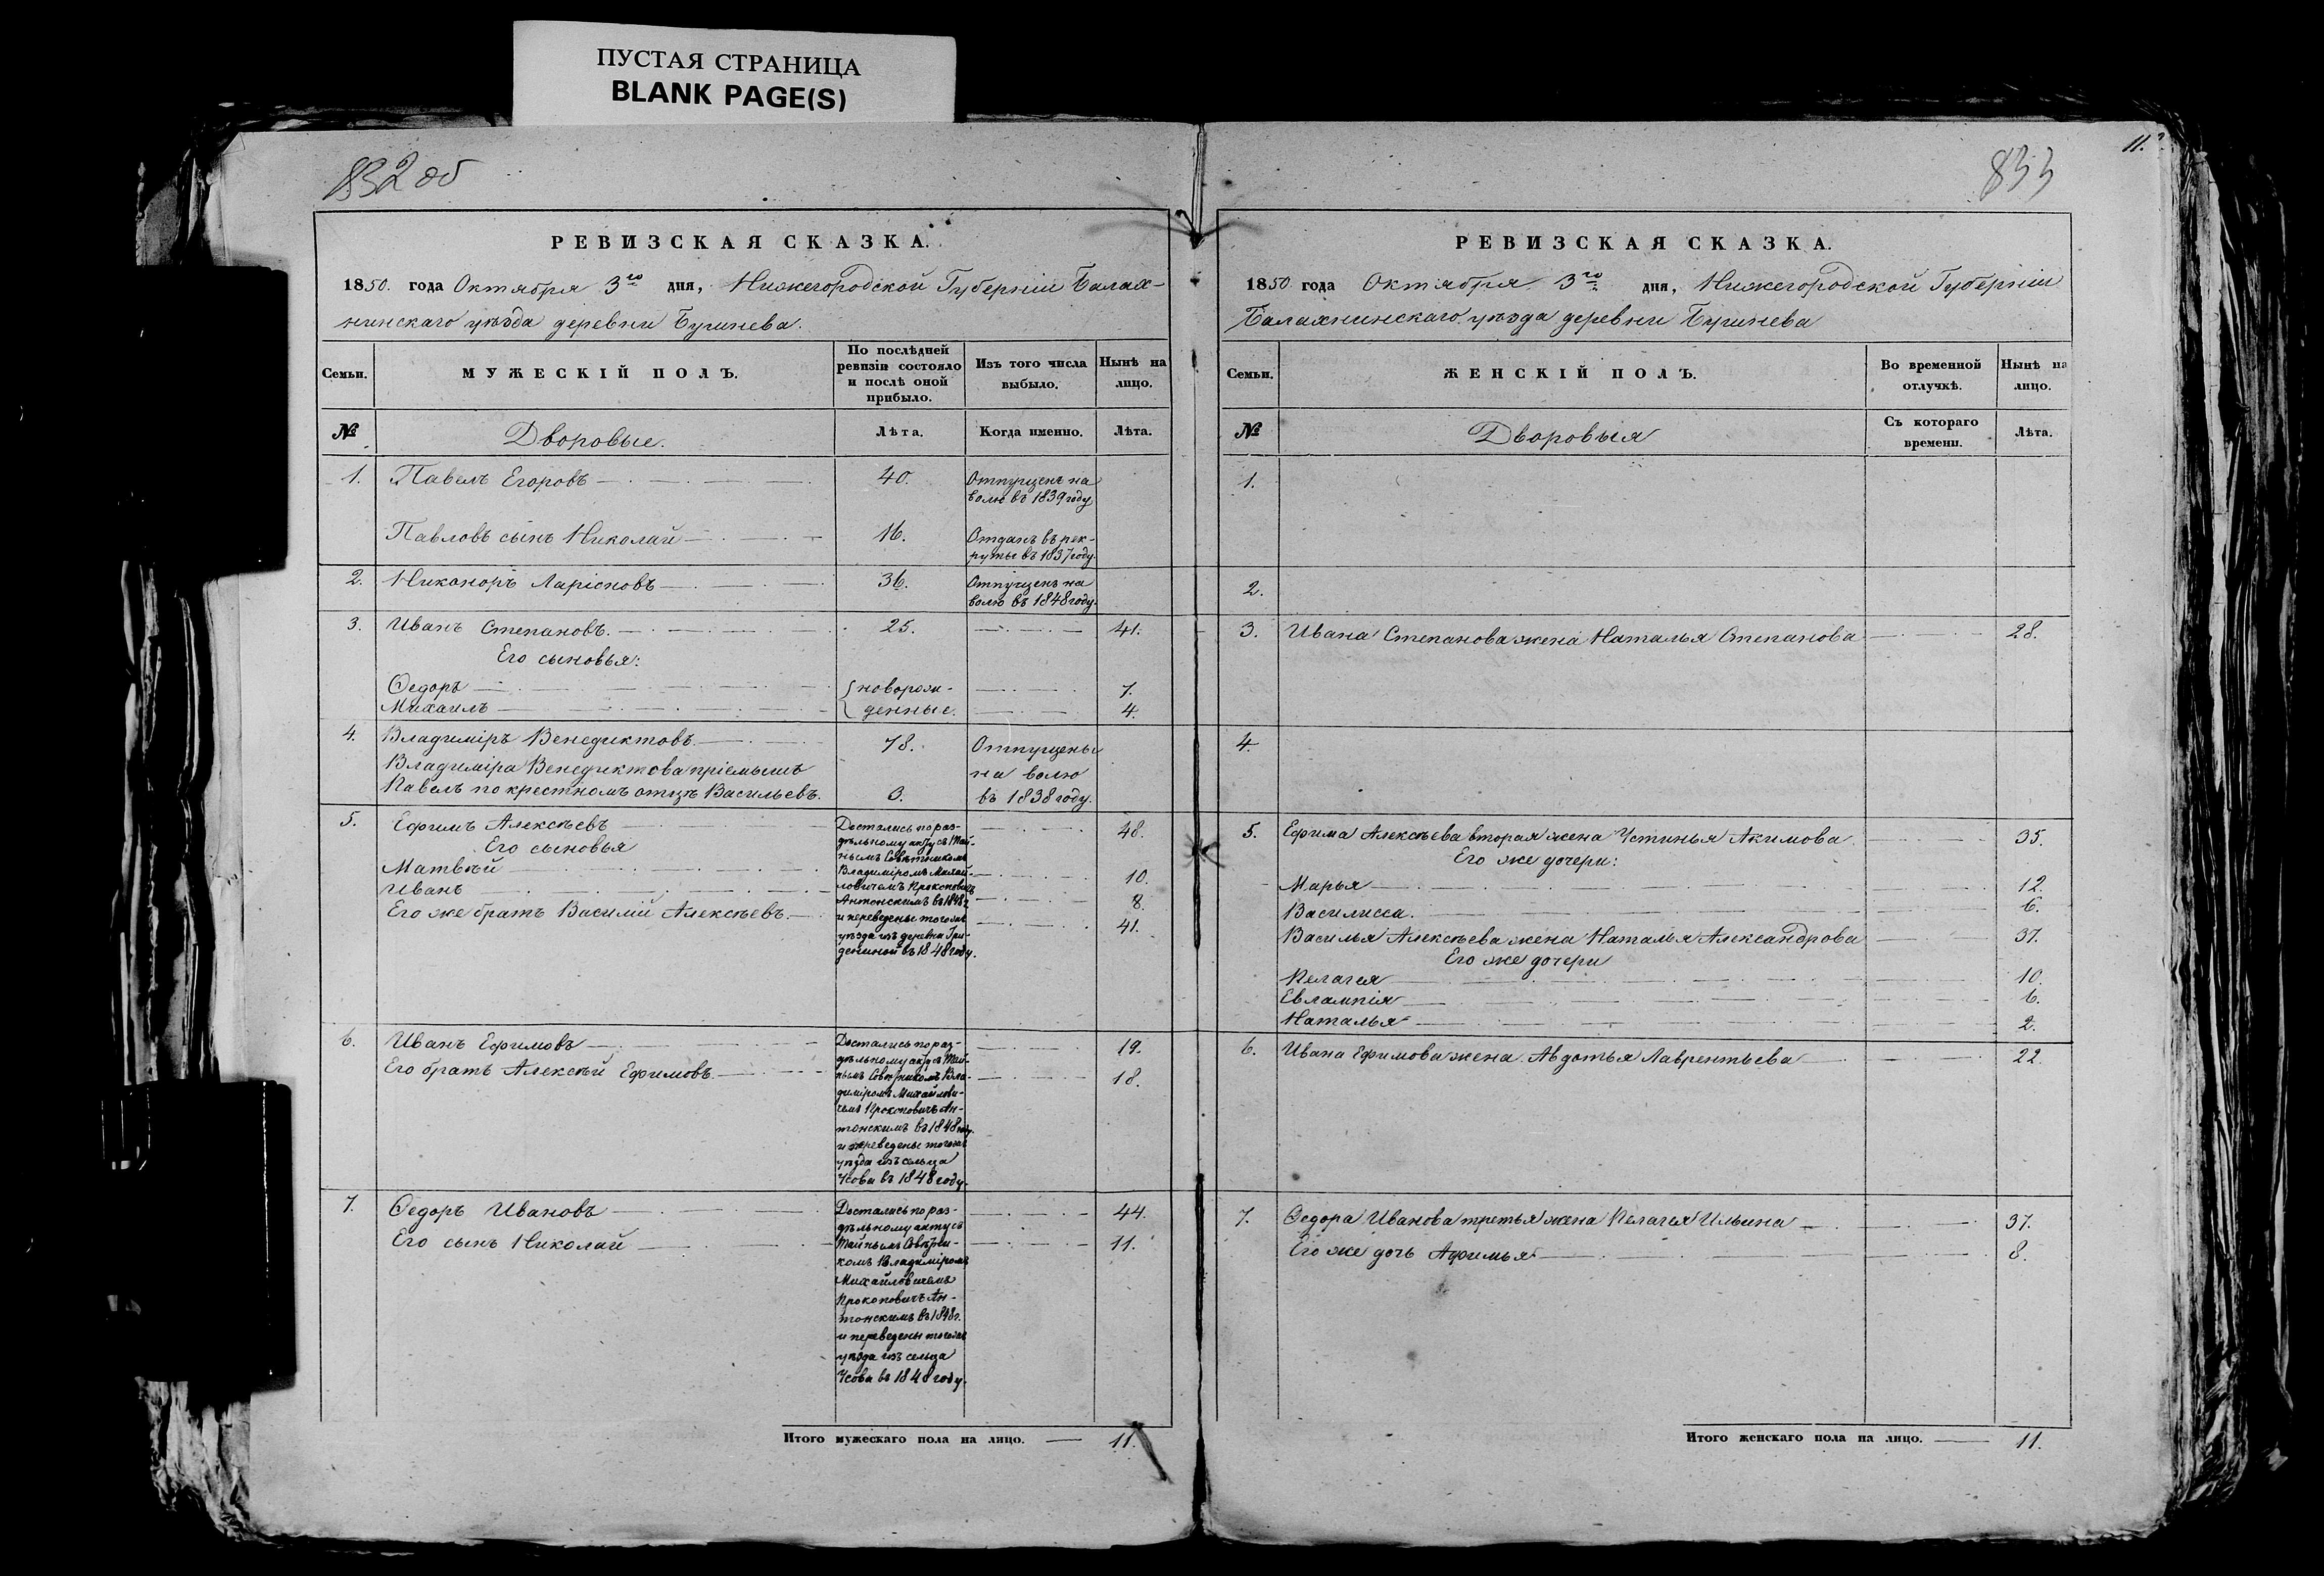 ПУСТАЯ СТРАНИЦА
BLANK PAGE(S)
832 об
РЕВИЗСКАЯ СКАЗКА.
1850. года Октября 3го дня, Нижегородской Губерніи Балах-
нинскаго уѣзда деревни
Семьи.
МУЖЕСКІЙ ПОЛЪ.
По послѣдней ревизіи состояло и послѣ оной прибыло.
Изъ того числа выбыло.
Нынѣ на лицо.
№
Дворовые.
Лѣта.
Когда именно.
Лѣта.
1. Павелъ Егоровъ 40. Отпущенъ на
волю въ 1839 году
Павловъ сынъ Николай 16. Отданъ въ рек-
руты въ 1837 году.
2. Никоноръ Ларіоновъ 36. Отпущенъ на
волю въ 1848 году.
3. Иванъ Степановъ. 25. 41.
Его сыновья:
Ѳедоръ новорож- 7.
Михаилъ денные. 4.
4. Владиміръ Венедиктовъ 78. Отпущены
Владиміра Венедиктова пріемышъ на волю
Павелъ по крестномъ отцѣ Васильевъ. 3. въ 1838 году.
5. Ефимъ Алексѣевъ 48.
Его сыновья
Матвѣй 10.
Иванъ 8.
Его же братъ Василій Алексѣевъ. 41.
Достались по раз-
дѣльному акту съ Тай-
нымъ Совѣтникомъ
Владиміромъ Михай-
ловичемъ Прокоповичъ
Антонскимъ въ 1848 г.
и переведены тогоже
уѣзда изъ деревни Гри-
дениной въ 1848 году.
6. Иванъ Ефимовъ 19.
Его братъ Алексѣй Ефимовъ 18.
Достались по раз-
дѣльному акту съ Тай-
нымъ Совѣтникомъ Вла-
диміромъ Михайлови-
чемъ Прокоповичъ Ан-
тонскимъ въ 1848 году.
и переведены тогоже
уѣзда изъ сельца
Усова въ 1848 году.
7. Ѳедоръ Ивановъ 44.
Его сынъ Николай 11.
Достались по раз-
дѣльному акту съ
Тайнымъ Совѣтни-
комъ Владиміромъ
Михайловичемъ
Прокоповичъ Ан-
тонскимъ въ 1848 г.
и переведены тогоже
уѣзда изъ сельца
Усова въ 1848 году.
Итого мужескаго пола на лицо. 11.
11.
833
РЕВИЗСКАЯ СКАЗКА.
1850 года Октября 3го дня, Нижегородской Губерніи
Балахнинскаго уѣзда деревни
Семьи.
ЖЕНСКІЙ ПОЛЪ.
Во временной отлучкѣ.
Нынѣ на лицо.
№
Дворовыя
Съ котораго времени.
Лѣта.
1.
2.
3. Ивана Степанова жена Наталья Степанова 28.
4.
5. Ефима Алексѣева вторая жена Устинья Акимова 35.
Его же дочери:
Марья 12.
Василисса. 6.
Василья Алексѣева жена Наталья Александрова 37.
Его же дочери
Пелагея 10.
Евлампія 6.
Наталья 2.
6. Ивана Ефимова жена Авдотья Лаврентьева 22.
7. Ѳедора Иванова третья жена Пелагея Ильина 37.
Его же дочь Афимья 8.
Итого женскаго пола на лицо. 11.